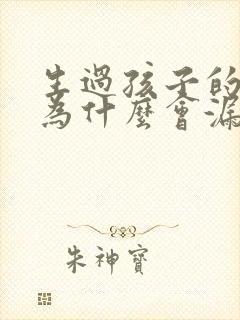 生過孩子的
為什麼會漏
朱神寶